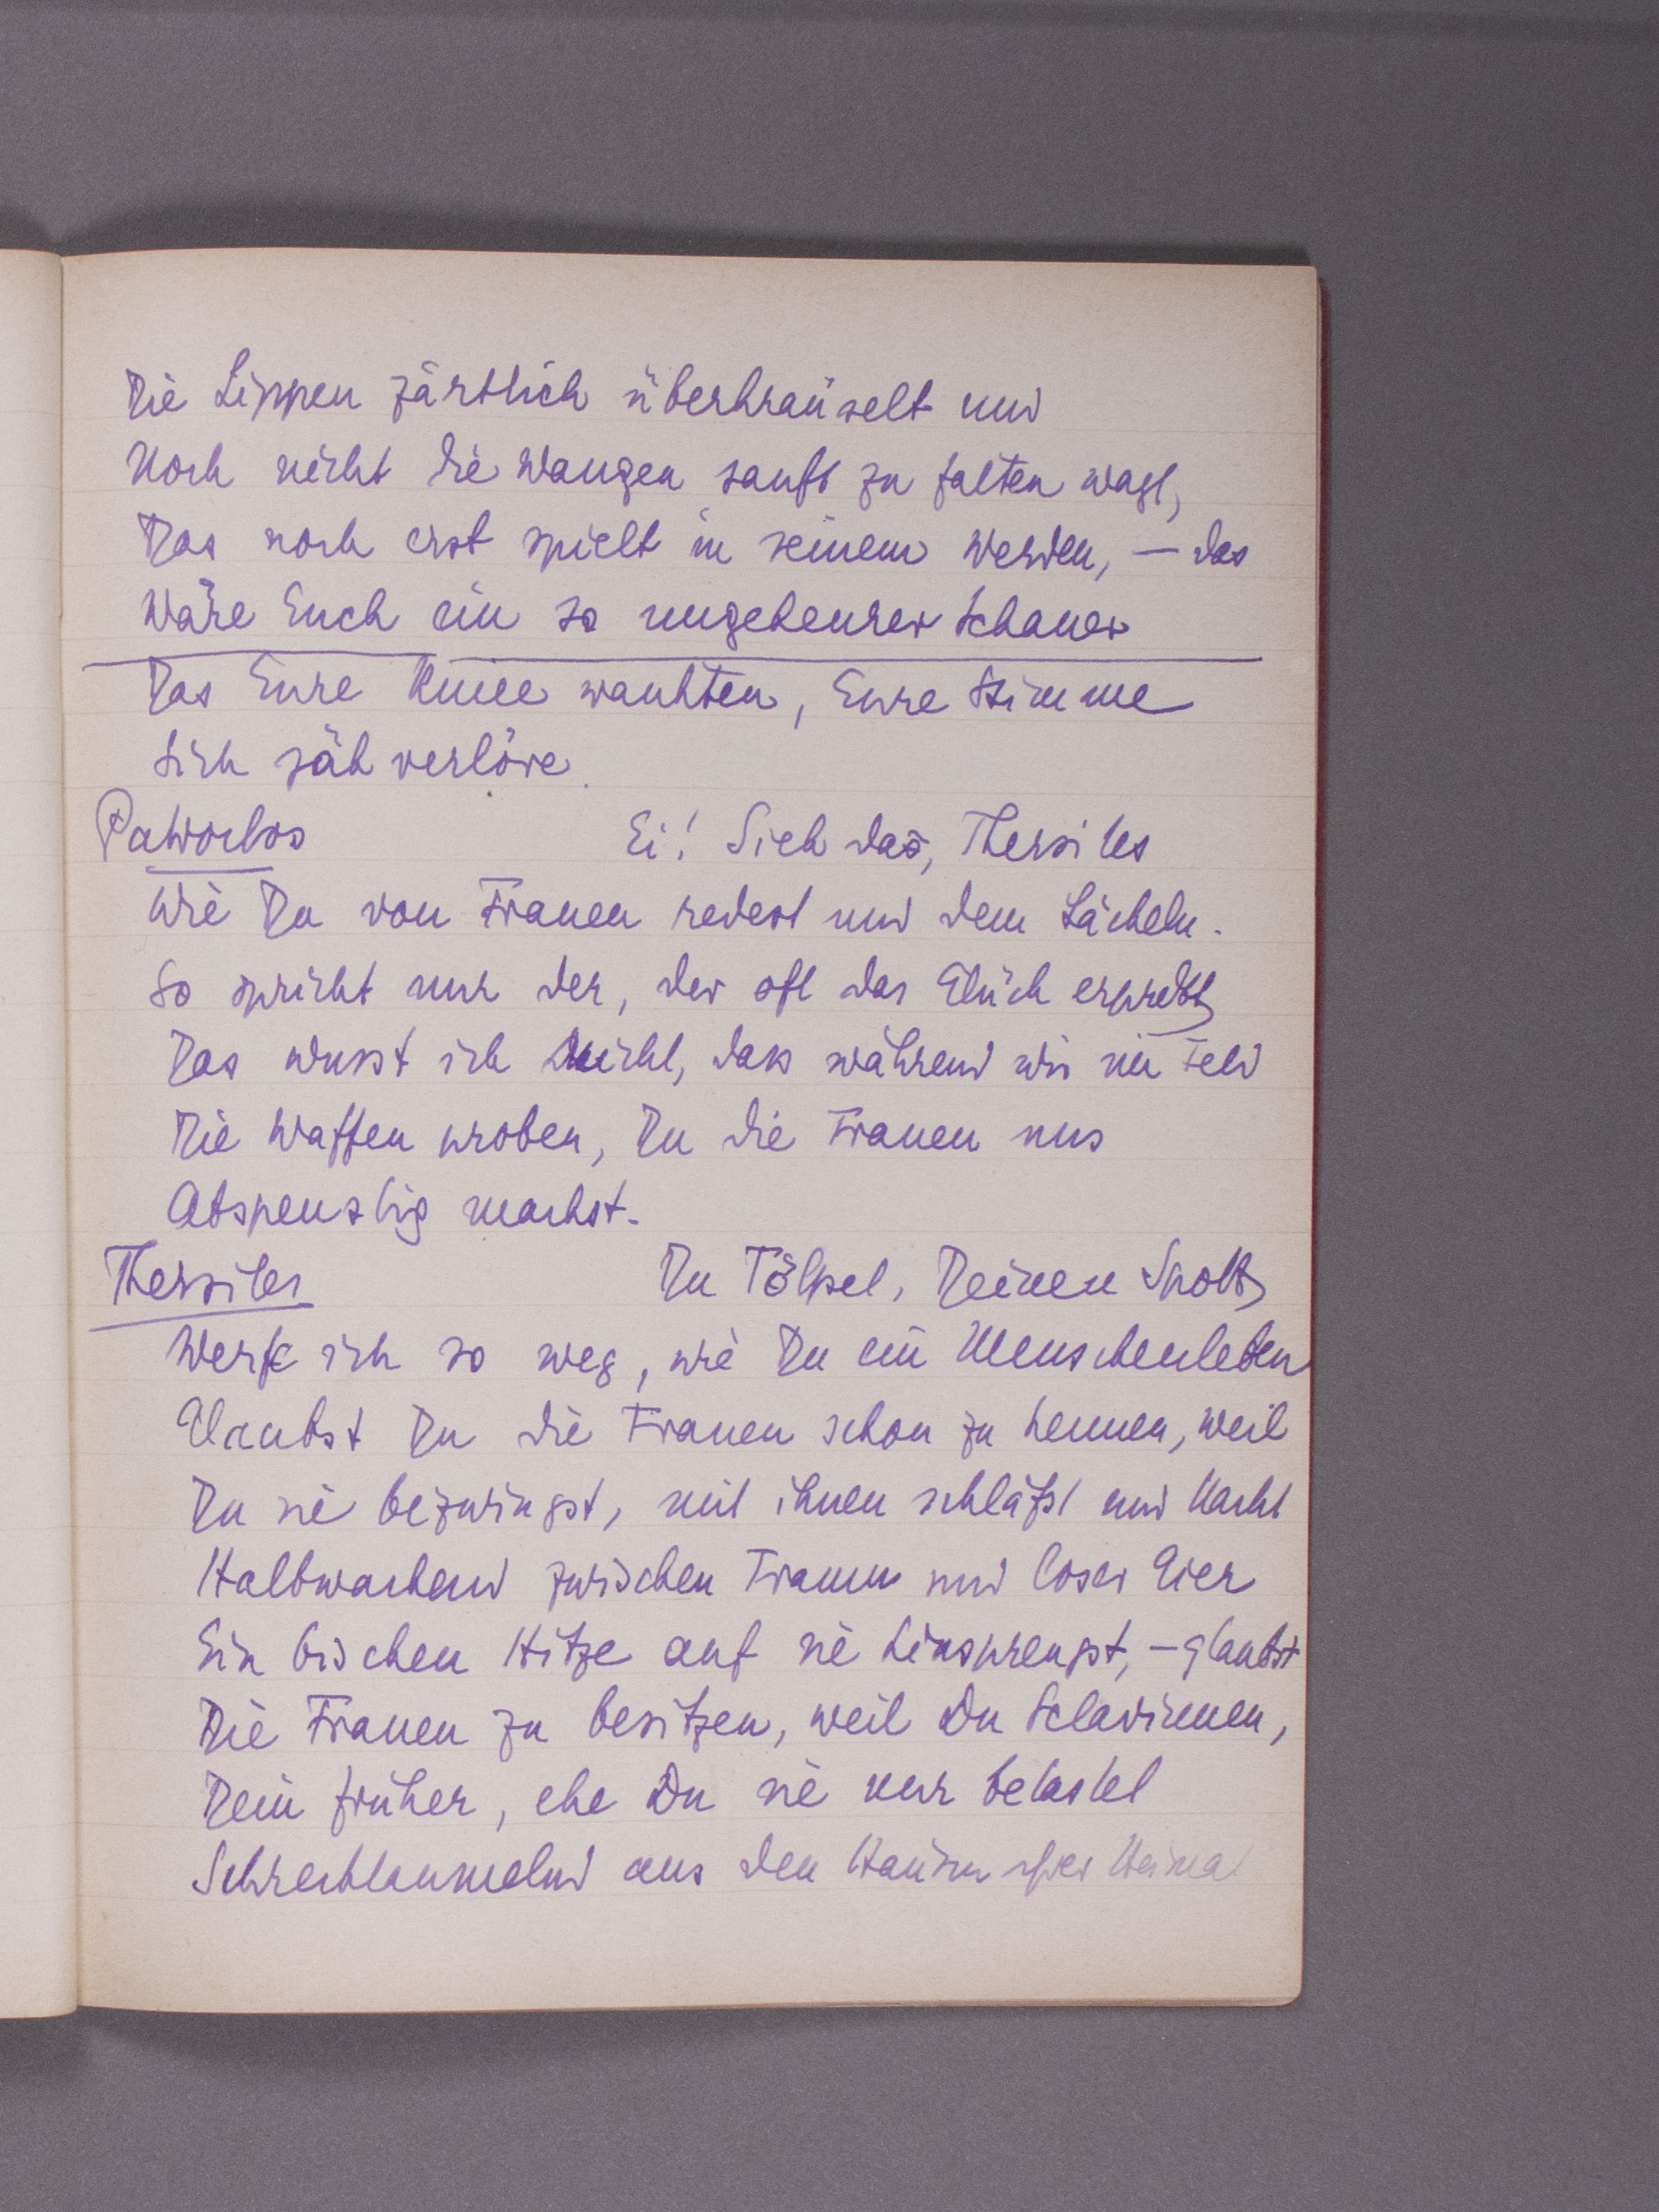 Die Lippen zärtlich überkräuselt und
Noch nicht die Wangen sanft zu falten wagt,
Das noch erst spielt in seinem Werden, – das
Wäre Euch ein so ungeheurer Schauer
Das Eure Kniee wankten, Eure Stimme
Sich jäh verlöre.
Patroclos Ei! Sieh das, Thersites
Wie Du von Frauen redest und dem Lächeln.
So spricht nur der, der oft das Glück erprobt,
Das wusst ich nicht, dass während wir im Feld
Die Waffen proben, Du die Frauen uns
Abspenstig machst.
Thersites Du Tölpel, Deinen Spott
Werfe ich so weg, wie Du ein Menschenleben
Glaubst Du die Frauen schon zu kennen, weil
Du sie bezwingst, mit ihnen schläfst und Nacht
Halbwachend zwischen Traum und loser Gier
Ein bischen Hitze auf sie hinsprengst, – glaubst
Die Frauen zu besitzen, weil Du Sclavinnen,
Dein früher, ehe Du sie nur betastet
Schrecktaumelnd aus den Häusern ihrer Heimat